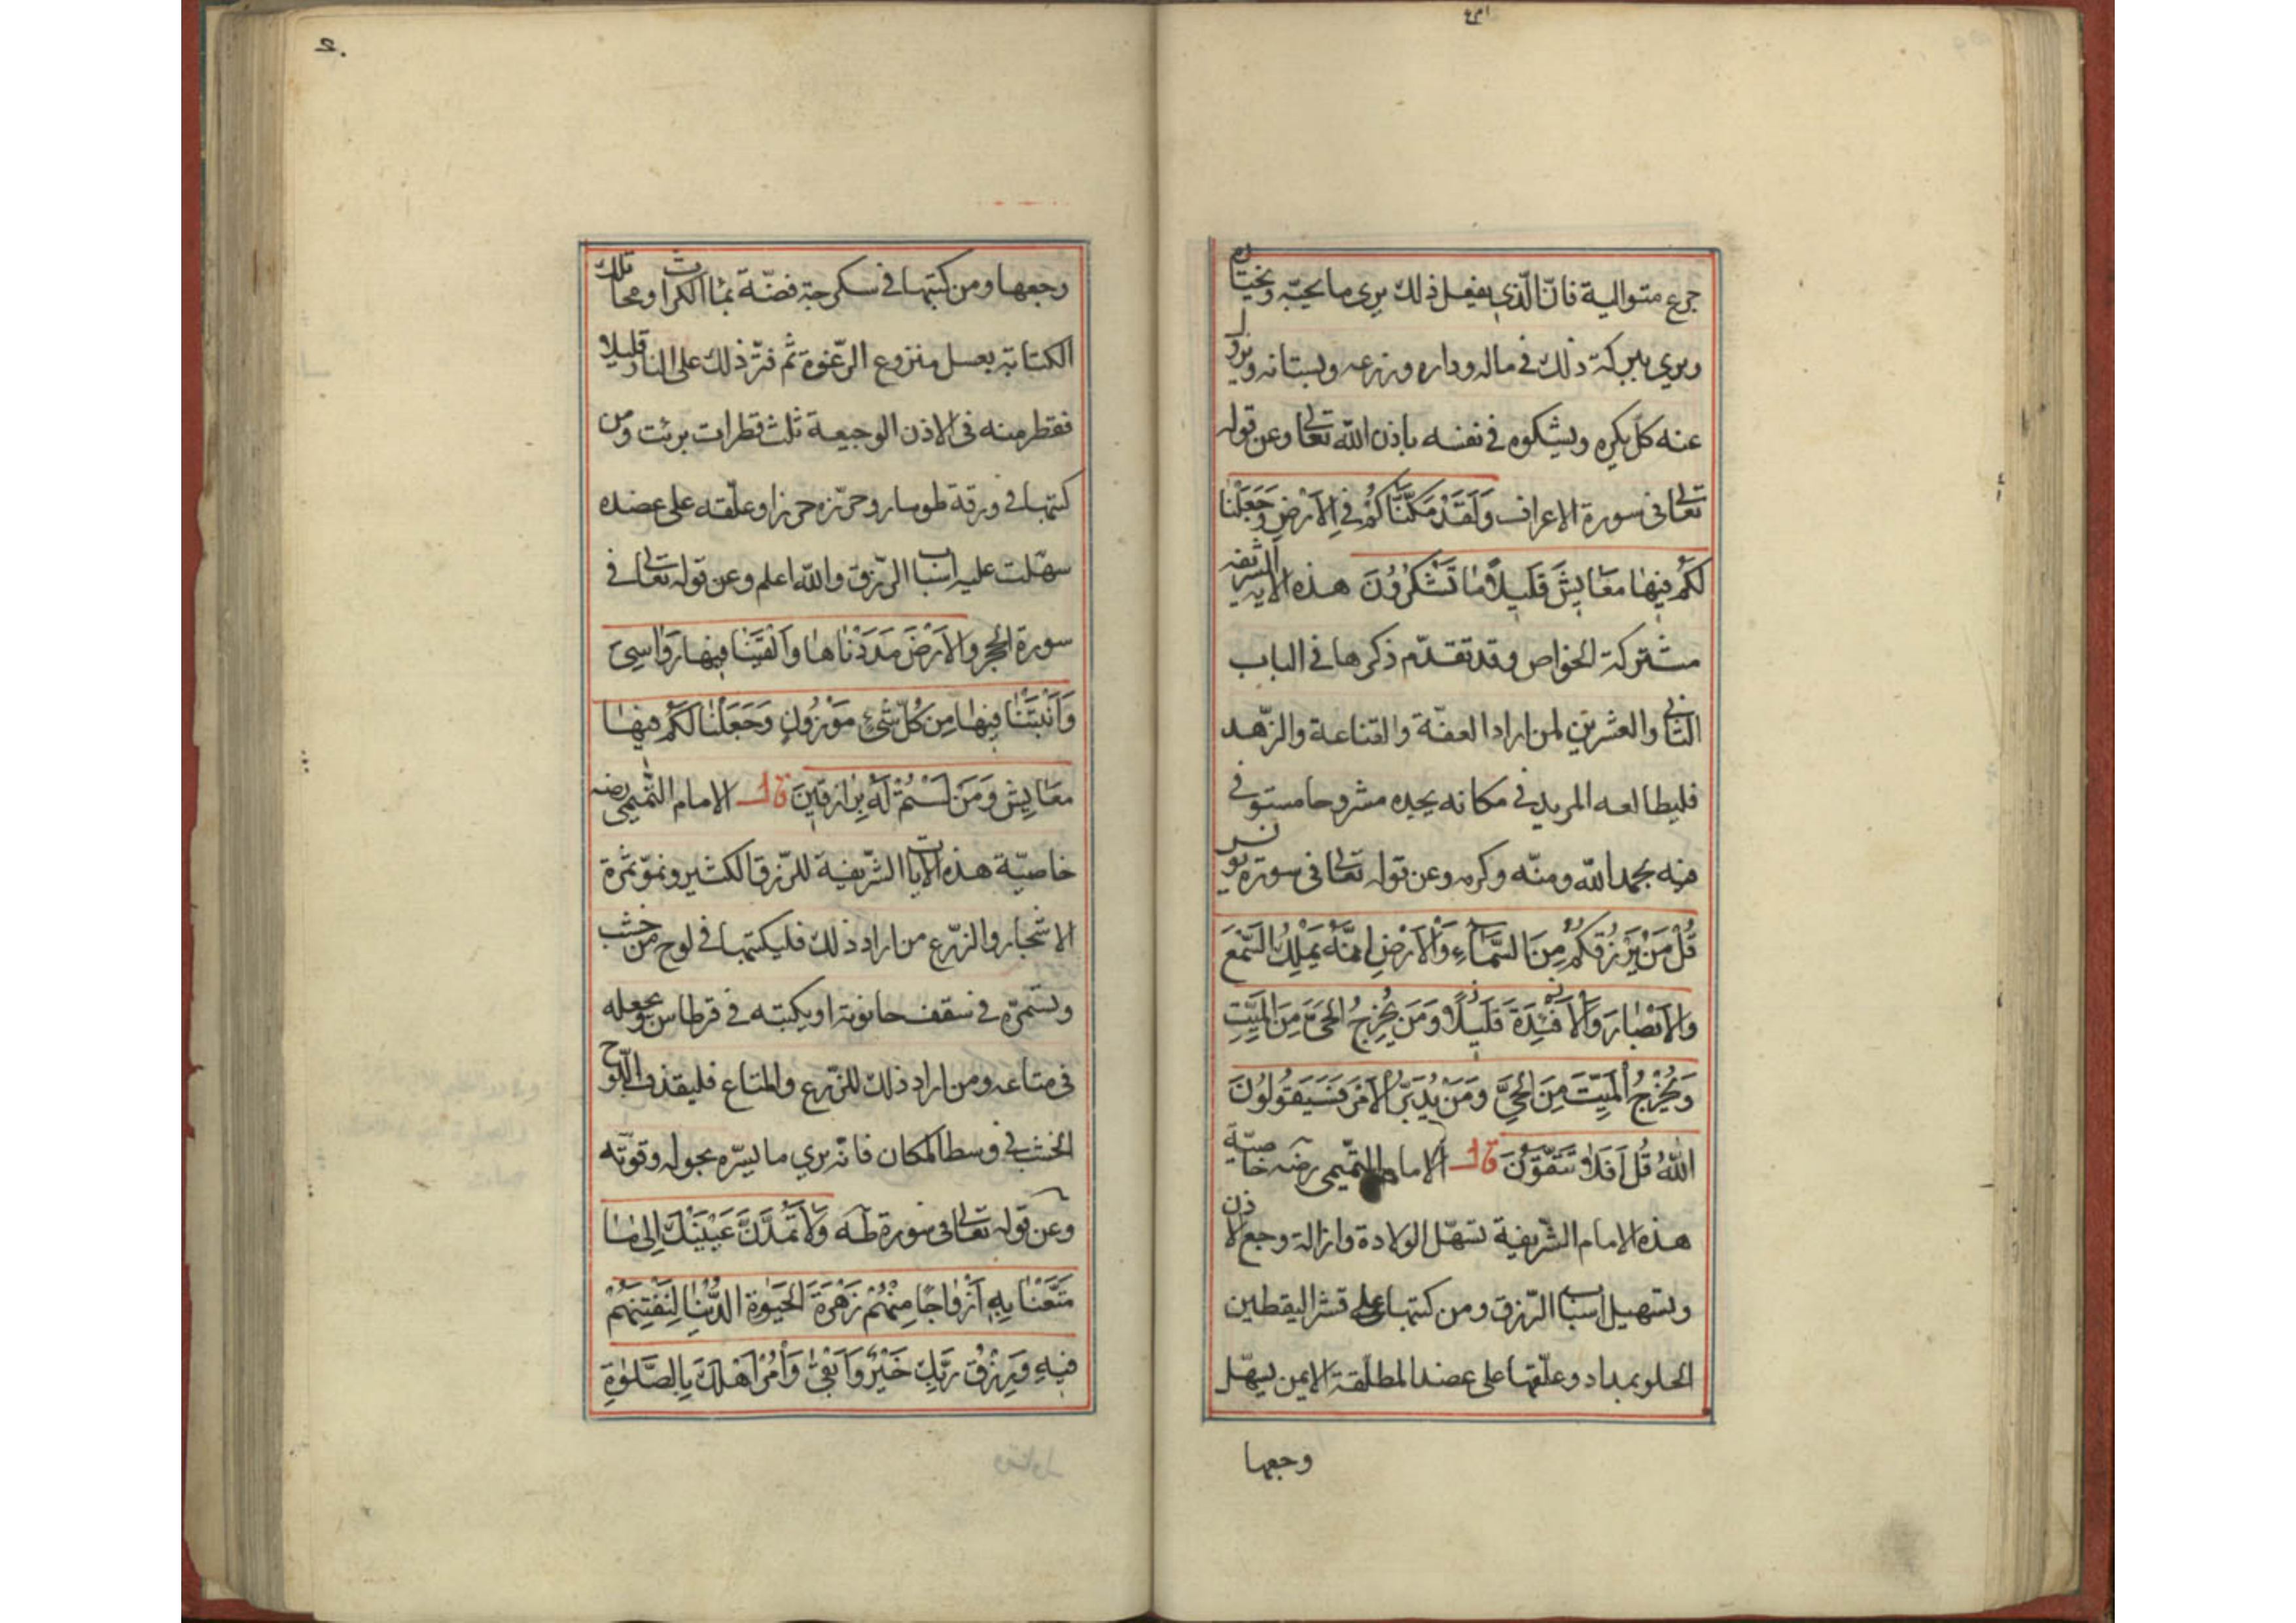 جرع متوالية فانّ الّذي يفعل ذلك يرى ما يحبّه ويختاره
ويري ببركة ذلك في ماله وداره وزرعه وبستانه ويزول
عنه كلّ يكره ويشكوه في نفسه باذن الله تعالى وعن قوله
تعالى في سورة الاعراف وَلَقَدْ مَكَّنَّاكُمْ فِي الْاَرْضِ وَجَعَلْنَا
لَكُمْ فِيهَا مَعَايِشَ قَلِيلًا مَا تَشْكُرُونَ هذه الاية الشريفة
مشتركة الخواص وقد تقدّم ذكرها في الباب
الثاني والعشرين لمن اراد العفّة والقناعة والزّهد
فليطالعه المريد في مكانه يجده مشروحا مستوفى
فيه بحمد الله ومنّه وكرمه وعن قوله تعالى في سورة يونس
قُلْ مَنْ يَرْزُقُكُمْ مِنَ السَّمَاءِ وَالْاَرْضِ اَمَّنْ يَمْلِكُ السَّمْعَ
وَالْاَبْصَارَ وَالْاَفْئِدَةَ قَلِيلًا وَمَنْ يُخْرِجُ الْحَيَّ مِنَ الْمَيِّتِ
وَيُخْرِجُ الْمَيِّتَ مِنَ الْحَيِّ وَمَنْ يُدَبِّرُ الْاَمْرَ فَسَيَقُولُونَ
اللهُ قُلْ اَفَلَا تَتَّقُونَ قال الامام التّميمي رضه خاصيّة
هذه الامام الشّريفة تسهّل الولادة وازالة وجع الاذن
وتسهيل اسباب الرّزق ومن كتبها على قشر اليقطين
الحلو بمداد وعلّقها على عضد المطلّقة الايمن يسهّل
وجعها
وجعها ومن كتبها في سكرجة فضّة بماء الكراث ومحا تلك
الكتابة بعسل منزوع الرّغوة ثم فتّر ذلك على النار قليلا
فقطر منه في الاذن الوجيعة ثلث قطرات برئت ومن
كتبها في ورقة طومار وحرّزه حرزا وعلّقه على عضده
سهّلت عليه اسباب الرّزق والله اعلم وعن قوله تعالى في
سورة الحجر وَالْاَرْضَ مَدَدْنَاهَا وَاَلْقَيْنَا فِيهَا رَوَاسِيَ
وَاَنْبَتْنَا فِيهَا مِنْ كُلِّ شَيْءٍ مَوْزُونٍ وَجَعَلْنَا لَكُمْ فِيهَا
مَعَايِشَ وَمَنْ لَسْتُمْ لَهُ بِرَازِقِينَ قال الامام التّميمي رضه
خاصيّة هذه الايات الشّريفة للرّزق الكثير ونموّ ثمرة
الاشجار والزّرع من اراد ذلك فليكتبها في لوح من خشب
ويسمّره في سقف حانوته او يكتبه في قرطاس ويجعله
في متاعه ومن اراد ذلك للزّرع والمتاع فليقذف اللّوح
الخشب في وسط المكان فانّه يري ما يسرّه بحوله وقوّته
وعن قوله تعالى في سورة طه وَلَا تَمُدَّنَّ عَيْنَيْكَ اِلَى مَا
مَتَّعْنَا بِهِ اَزْوَاجًا مِنْهُمْ زَهْرَةَ الْحَيٰوةِ الدُّنْيَا لِنَفْتِنَهُمْ
فِيهِ وَرِزْقُ رَبِّكَ خَيْرٌ وَاَبْقَى وَأْمُرْ اَهْلَكَ بِالصَّلٰوةِ